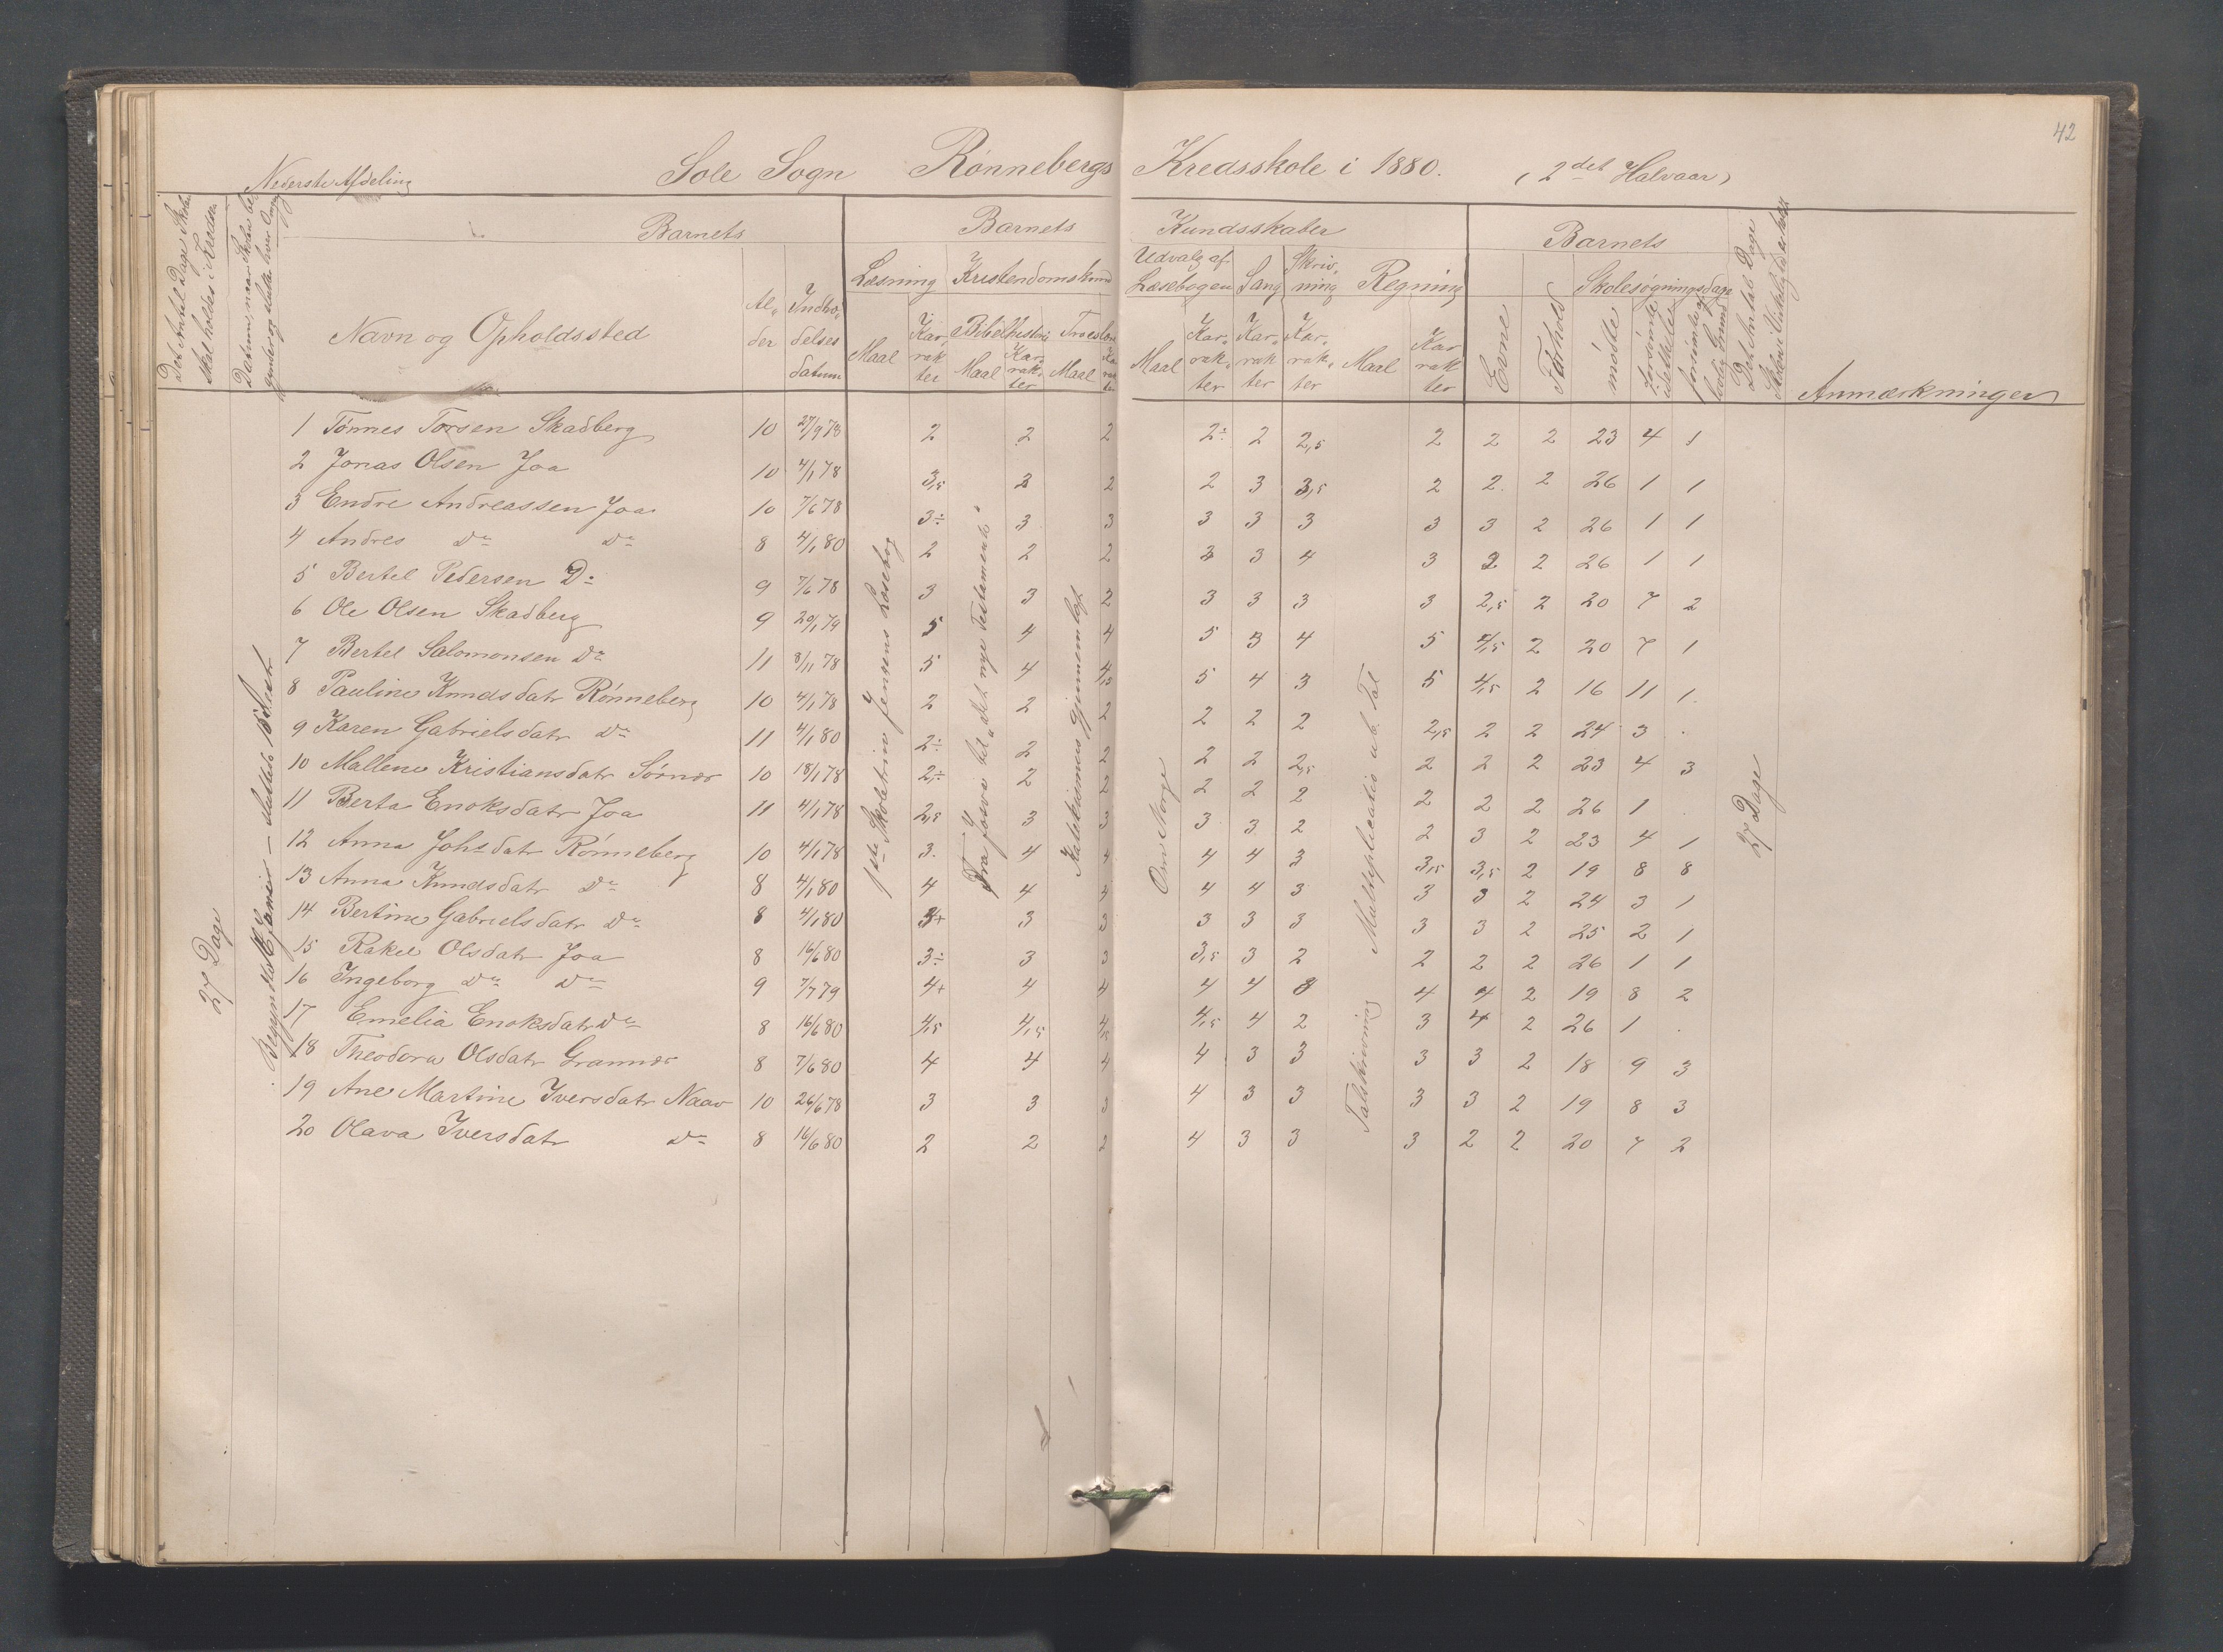 42
Nederste Afdeling
Sole Sogn Rønnebergs Kredsskole i 1880. (2det Halvaar)
Det Antal Dage Skolen skal holdes i Kredsen
Datum, naar Skolen begynder og slutter hver Omgang
Barnets
Barnets Kundsskaber
Barnets
Navn og Opholdssted
Al-der
Indtrædelses datum
Læsning
Kristendomskund
Udvalg af Læsebogen
Sang
Skriv-ning
Regning
Evne
Forhold
Skolesøgningsdage
Maal Karrakter
Bibelhistorie Maal Karrakter
Troeslære Maal Karrakter
Maal Karrakter Karrakter Karrakter Maal Karrakter
mødte
forsømte
forsømte af lovlig Grund
Det Antal Dage Skolen i Virkelighed er holdt
Anmærkninger
1 Tønnes Torsen Skadberg 10 27/9 78 2 2 2 2÷ 2 2,5 2 2 2 23 4 1
2 Jonas Olsen Joa 10 4/1 78 3,5 3 2 2 3 3,5 2 2 2 26 1 1
3 Endre Andreassen Joa 10 7/6 78 3÷ 3 3 3 3 3 3 3 2 26 1 1
4 Andres Do Do 8 4/1 80 2 2 2 3 3 4 3 2 2 26 1 1
5 Bertel Pedersen Do 9 7/6 78 3 3 2 3 3 3 3 2,5 2 20 7 2
6 Ole Olsen Skadberg 9 20/1 79 5 4 4 5 3 4 5 4,5 2 20 7 1
7 Bertel Salomonsen Do 11 8/11 78 5 4 4,5 5 4 3 5 4,5 2 16 11 1.
8 Pauline Knudsdatr Rønneberg 10 4/1 78 2 2 2 2 2 2 2,5 2 2 24 3 .
9 Karen Gabrielsdatr Do 11 4/1 80 2÷ 2 2 2 2 2,5 2 2 2 23 4 3
10 Mallene Kristiansdatr Sørnæs 10 18/1 78 2÷ 2 2 2 2 2 2 2 2 26 1 .
11 Berta Enoksdatr Joa 11 4/1 78 2,5 3 3 3 3 2 2 3 2 23 4 1
12 Anna Johsdatr Rønneberg 10 4/1 78 3. 4 4 4 4 3 3,5 3,5 2 19 8 8
13 Anna Knudsdatr Do 8 4/1 80 4 4 4 4 4 3 3 3 2 24 3 1
14 Bertine Gabrielsdatr Do 8 4/1 80 3+ 3 3 3 3 3 3 3 2 25 2 1
15 Rakel Olsdatr Joa 8 16/6 80 3÷ 3 3 3,5 3 2 2 2 2 26 1 1
16 Ingeborg Do Do 9 7/7 79 4+ 4 4 4 4 3 4 4 2 19 8 2
17 Emelia Enoksdatr Do 8 16/6 80 4,5 4,5 4,5 4,5 4 2 3 4 2 26 1 .
18 Theodora Olsdatr Grannæs 8 7/6 80 4 4 4 4 3 3 3 3 2 18 9 3
19 Ane Martine Iversdatr Naav 10 26/6 78 3 3 3 4 3 3 3 3 2 19 8 3
20 Olava Iversdatr Do 8 16/6 80 2 2 2 4 3 3 3 2 2 20 7 2
27 Dage
1ste Skoletrin Jensens Læsebog
Fra Josva til "det nye Testamente"
Katekismus gjennemlæst
Om Norge
Talskrivning Multiplication
27 Dage